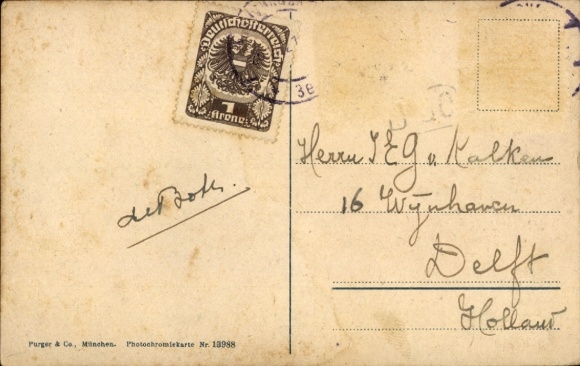 Deutschösterreich
1
Krone
de Both.
Herrn I E G v Kalken
16 Wijnhaven
Delft
Holland
Purger & Co., München. Photochromiekarte Nr. 13988